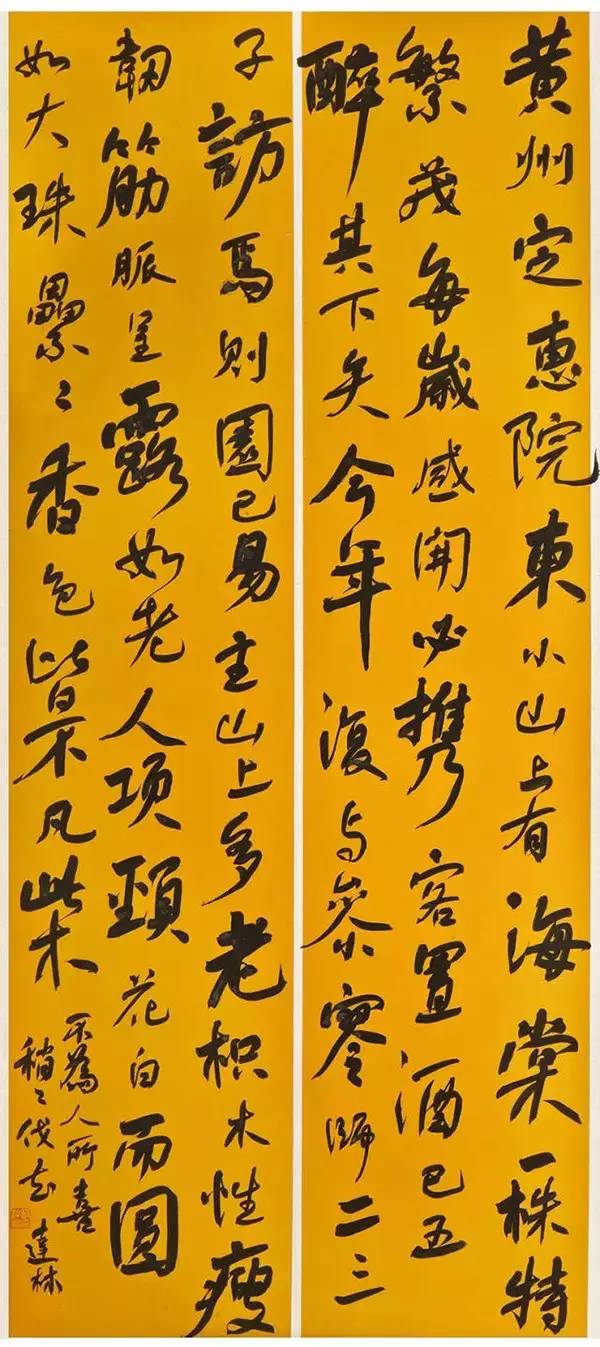 黄州定惠院東小山上有海棠一株特
繁茂每歲盛開必携客置酒已五
醉其下矣今年復与參寥師二三
子訪焉則園已易主山上多老枳木性瘦
韌筋脈呈露如老人項頸花白而圓
如大珠纍々香色皆不凡此木
不為人所喜
稍々伐去 達林